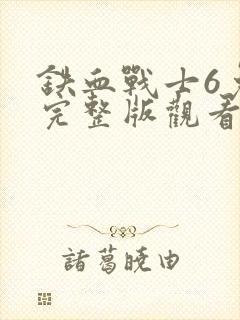 鉄血戰士6
完整版觀看
諸葛曉由